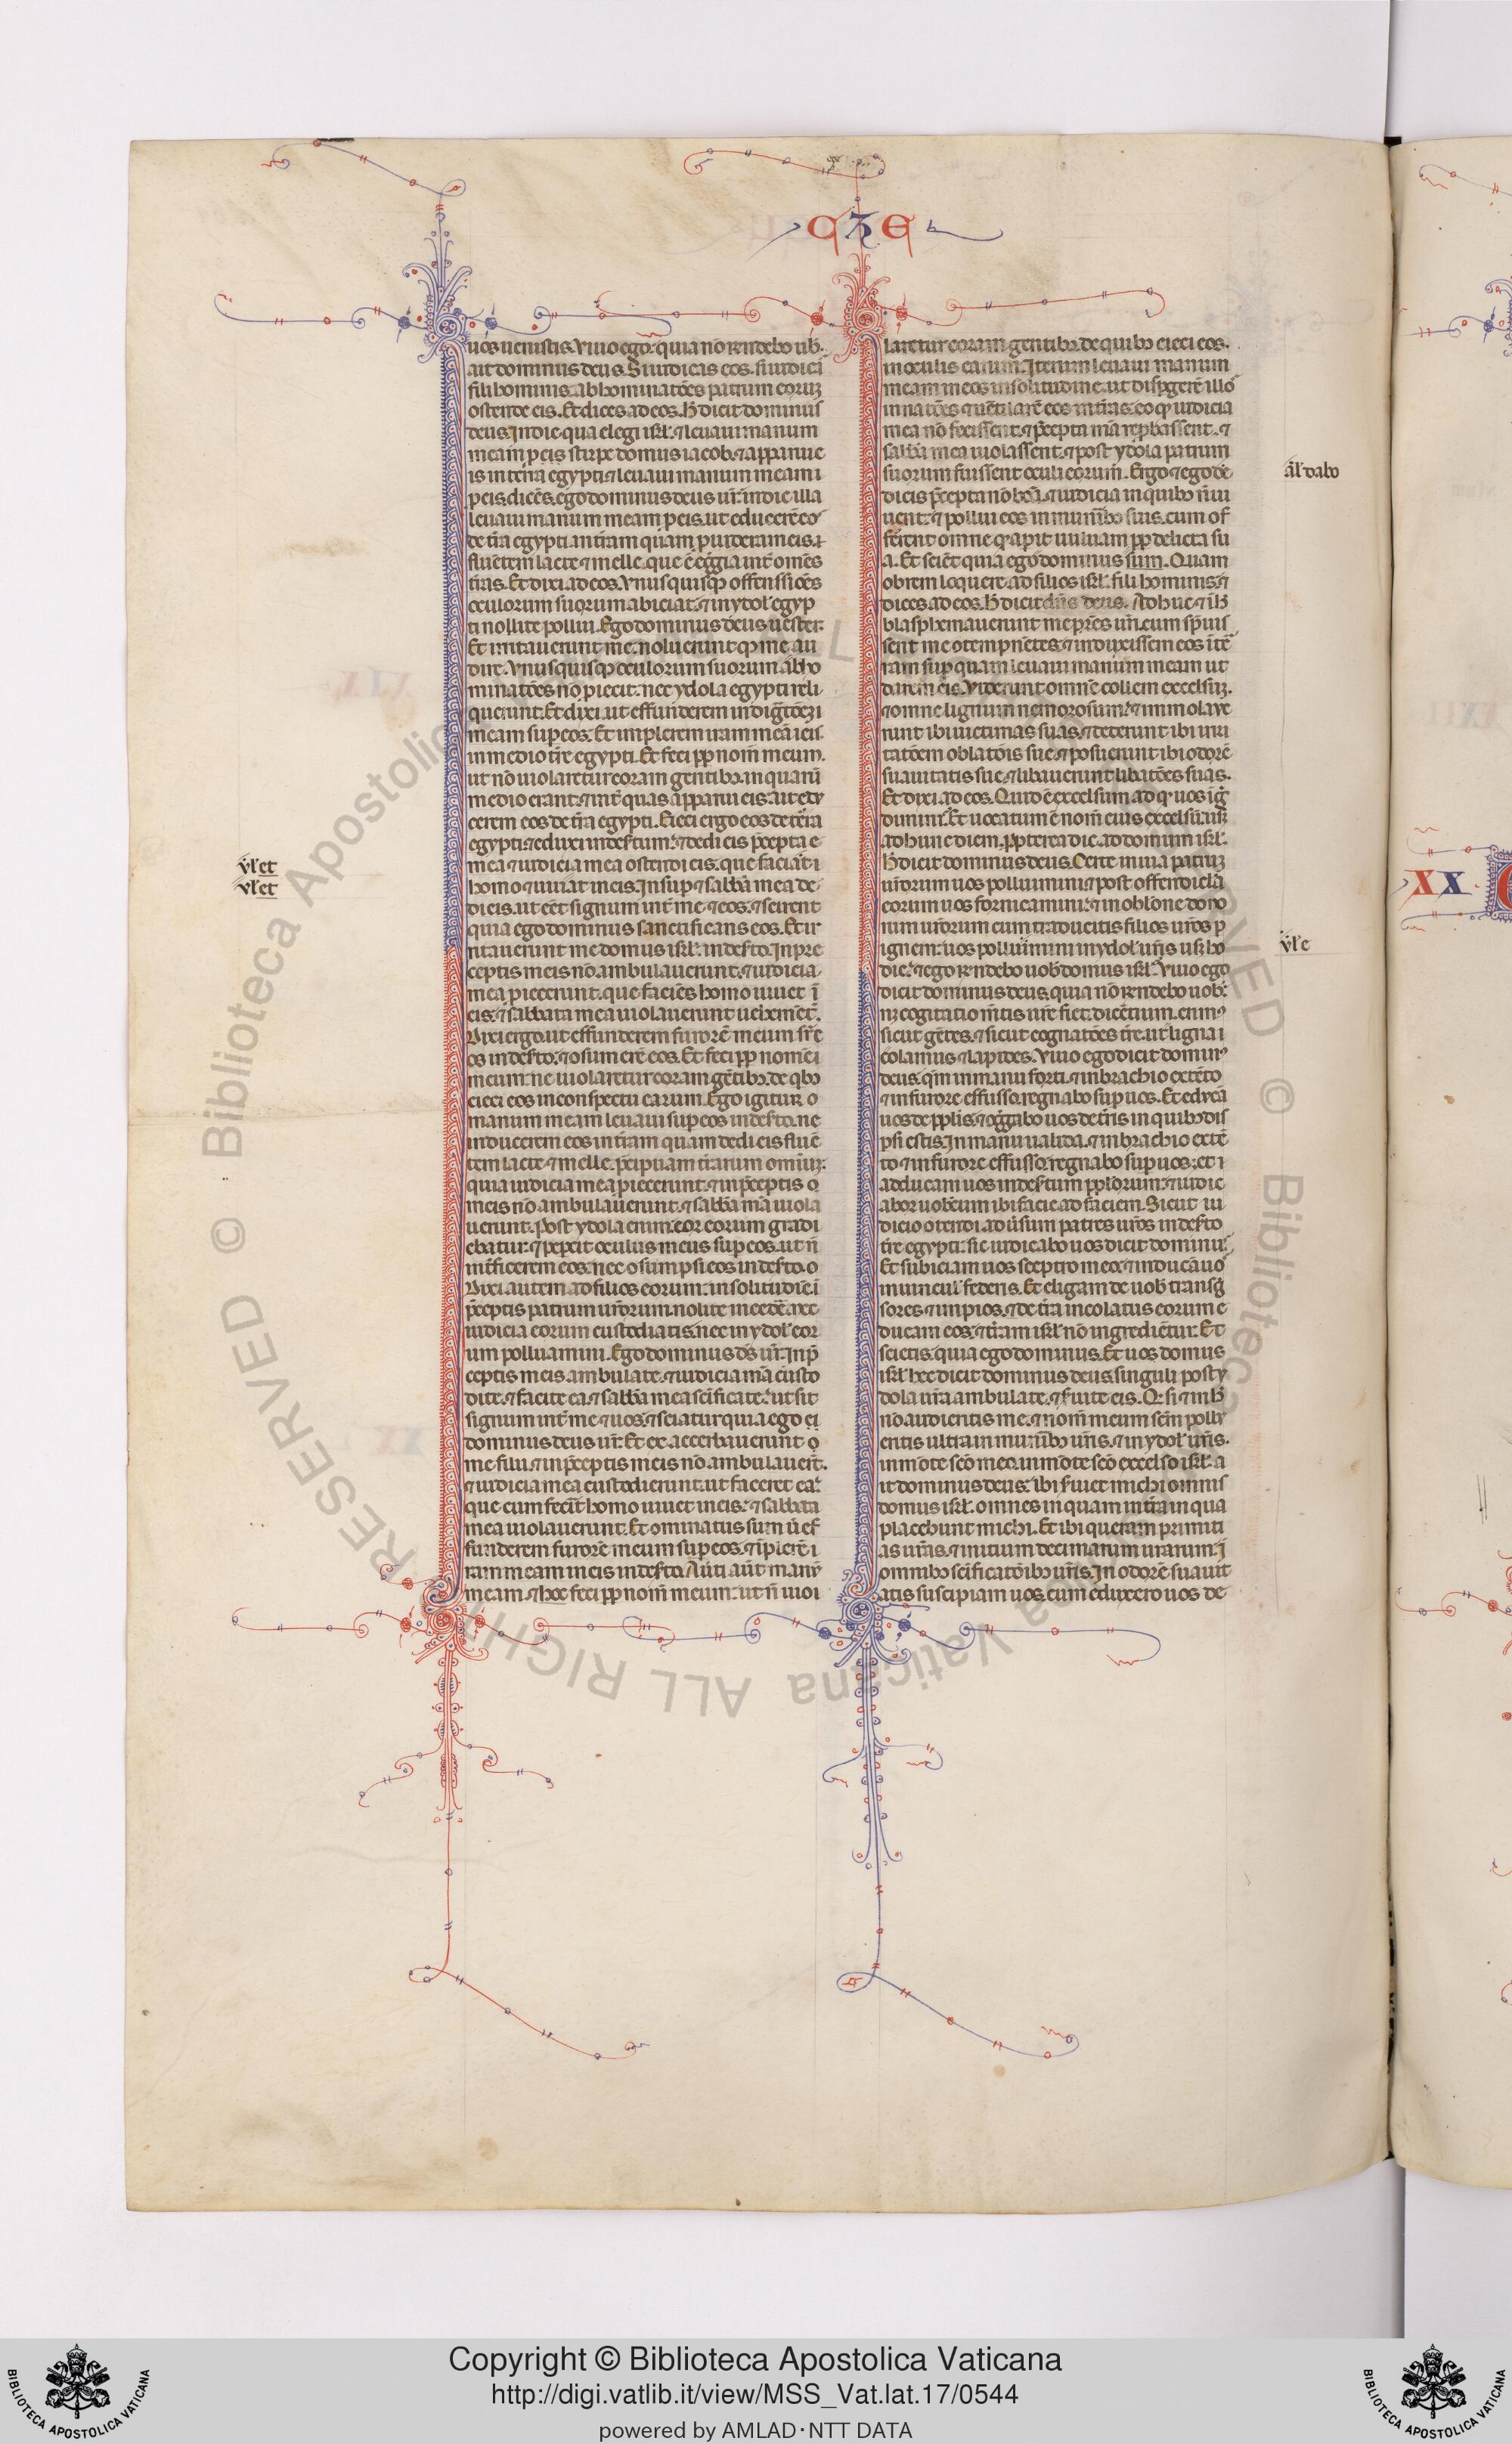 EZE
uos uenistis. Viuo ego: quia nō respōdebo uob̄.
ait dominus deus. Si iudicas eos. si iudicas
fili hominis. abhominatōes patrum eoruꝫ
ostende eis. Et dices ad eos. H̄ dicit dominus
deus. In die qua elegi isrl̄. ⁊ leuaui manum
meam ꝑ eis stirpe domus iacob. ⁊ apparui e
is in terra egypti ⁊ leuaui manum meam
ꝑ eis. dicēs. ego dominus deus ur̄. in die illa
leuaui manum meam ꝑ eis. ut educerē eos
de tr̄a egypti. in tr̄am quam ꝓuideram eis.
fluētem lacte ⁊ melle. que ē egr̄gia int̄ omēs
tr̄as. Et dixi ad eos. Vnusquisqꝫ offenssiōes
oculorum suorum abiciat. ⁊ in ydol̄ egyp
ti nollite pollui. Ego dominus deus uester.
Et irritauerunt me. noluerunt qꝫ me au
dire. Vnusquisqꝫ oculorum suorum abho
minatōes nō ꝓiecit. nec ydola egypti reli
querunt. Et dixi. ut effunderem indignatōeꝫ
meam suꝑ eos. Et implerem iram meā ī eis
in medio tr̄e egypti. Et feci ꝓp nom̄ meum.
ut nō uiolaretur coram gentibꝫ. in quarū
medio erant. ⁊ int̄ quas apparui eis. ut edu
cerem eos de tr̄a egypti. Eieci ergo eos de terra
egypti. ⁊ eduxi in desertum. ⁊ dedi eis p̄cepta
mea ⁊ iudicia mea ostendi eis. que faciat
homo ⁊ uiuat in eis. Insuꝑ ⁊ sabb̄a mea de
di eis. ut eēt signum int̄ me ⁊ eos. ⁊ scirent
quia ego dominus sanctificans eos. Et ir
ritauerunt me domus isrl̄. in deserto. In pre
ceptis meis nō ambulauerunt. ⁊ iudicia
mea ꝓiecerunt. que faciēs homo uiuet ī
eis. ⁊ sabbata mea uiolauerunt uehemēt̄.
Dixi ergo. ut effunderem furorē meum suꝑ
eos in deserto. ⁊ cōsumerē eos. Et feci ꝓp nomē
meum: ne uiolaretur coram gētibꝫ. de qbꝫ
eieci eos in conspectu earum. Ego igitur
manum meam leuaui suꝑ eos in deserto. ne
inducerem eos in tr̄am quam dedi eis fluē
tem lacte ⁊ melle. p̄cipuam tr̄arum omniuꝫ:
quia iudicia mea ꝓiecerunt. ⁊ in p̄ceptis
meis nō ambulauerunt. ⁊ sabb̄a mā uiola
uerunt. Post ydola enim cor eorum gradi
ebatur. ⁊ peꝑcit oculus meus suꝑ eos. ut nō
int̄ficerem eos. nec cōsumpsi eos in deserto.
Dixi autem ad filios eorum. in solitudīe. ī
p̄ceptis patrum ur̄orum. nolite incedē. nec
iudicia eorum custodiatis. nec in ydol̄ eor
um polluamini. Ego dominus ds̄ ur̄. In p̄
ceptis meis ambulate. ⁊ iudicia mā custo
dite. ⁊ facite ea. ⁊ sabb̄a mea sc̄ificate. ut sit
signum int̄ me ⁊ uos. ⁊ sciatur quia ego
dominus deus ur̄. Et exaccerbauerunt
me filii. ⁊ in p̄ceptis meis nō ambulauert̄.
⁊ iudicia mea custodierunt. ut faceret ea.
que cum fecit̄ homo uiuet in eis. ⁊ sabbata
mea uiolauerunt. Et ominatus sum ut ef
funderem furorē meum suꝑ eos. ⁊ īplerē i
ram meam in eis in deserto. Auerti aūt manū
meam. ⁊ hoc feci ꝓp nom̄ meum. ut n̄ uiol
vl̄ et
vl̄ et
laretur coram gentibꝫ. de quibꝫ eieci eos.
in oculis earum. Iterum leuaui manum
meam in eos in solitudine. ut dispgerē illos
in natōes. ⁊ uētilarē eos in tr̄as. eo qꝫ iudicia
mea nō fecissent. ⁊ p̄cepta mā reprobassent. ⁊
sabb̄a mea uiolassent. ⁊ post ydola patrum
suorum fuissent oculi eorum. Ergo ⁊ ego de
di eis p̄cepta nō bōa. ⁊ iudicia in quibꝫ nō ui
uent. ⁊ pollui eos in munībꝫ suis. cum of
ferent omne qꝫ aꝑit uuluam ꝓp delicta su
a. Et sciēt quia ego dominus sum. Quam
obrem loquere ad filios isrl̄. fili hominis. ⁊
dices ad eos. H̄ dicit dn̄s deus. Adhuc ⁊ in h̄
blasphemauerunt me pr̄es ur̄i. cum spreuis
sent me cōtempnētes. ⁊ induxissem eos ī ter
ram suꝑ quam leuaui manum meam ut
darem eis. Viderunt omnē collem excelsuꝫ.
⁊ omne lignum nemorosum. ⁊ immolaue
runt ibi uictimas suas. ⁊ dederunt ibi irri
tatōem oblatōis sue. ⁊ posuerunt ibi odorē
suauitatis sue. ⁊ libauerunt libatōes suas.
Et dixi ad eos. Quid ē excelsum ad qꝫ uos īgre
dimini. Et uocatum ē nom̄ eius excelsū. usqꝫ
ad hunc diem. Propterea dic ad domum isrl̄.
H̄ dicit dominus deus. Certe in uia patruꝫ
ur̄orum uos polluimini. ⁊ post offendicl̄a
eorum uos fornicamini. ⁊ in oblōne dono
rum ur̄orum cum traducitis filios ur̄os ꝑ
ignem: uos polluimini in ydol̄ ur̄is usqꝫ ho
die. ⁊ ego respōdebo uob̄ domus isrl̄. Viuo ego
dicit dominus deus. quia nō respōdebo uob̄.
nec cogitatio mētis ur̄e fiet. dicētium. enim
sicut gētes. ⁊ sicut cognatōes tr̄e. ut ligna
colamus ⁊ lapides. Viuo ego dicit dominus
deus. qm̄ in manu forti. ⁊ in brachio extēto
⁊ in furore effusso. regnabo suꝑ uos. Et educā
uos de ppl̄is. ⁊ cōgr̄gabo uos de tr̄is in quibꝫ dis
ꝑsi estis. In manu ualida. ⁊ in brachio extē
to ⁊ in furore effusso. regnabo suꝑ uos. et
adducam uos in desertum ppl̄orum. ⁊ iudic
abor uobiscum ibi facie ad faciem. Sicut iu
dicio cōtendi aduersum patres ur̄os in deserto
tr̄e egypti: sic iudicabo uos dicit dominus.
Et subiciam uos sceptro meo. ⁊ inducā uos
in uincul̄ federis. Et eligam de uob̄ transgres
sores ⁊ impios. ⁊ de tr̄a incolatus eorum e
ducam eos. ⁊ tr̄am isrl̄ nō ingredietur. Et
scietis. quia ego dominus. Et uos domus
isrl̄ hec dicit dominus deus. singuli post y
dola ur̄a ambulate. ⁊ seruite eis. Qꝫ si ⁊ in h̄
nō audieritis me. ⁊ nom̄ meum sc̄m pollu
entis ultra in munībꝫ ur̄is. ⁊ in ydol̄ ur̄is.
in mōte sc̄o meo. in mōte sc̄o excelso isrl̄. a
it dominus deus. ibi seruiet michi omnis
domus isrl̄. omnes inquam in tr̄a in qua
placebunt michi. Et ibi queram primiti
as ur̄as. ⁊ initium decimarum urarum. ī
omnibꝫ sc̄ificatōibꝫ ur̄is. In odorē suauit
atis suscipiam uos. cum eduxero uos de
al̄ dabo
vl̄ e
XX
Copyright © Biblioteca Apostolica Vaticana
http://digi.vatlib.it/view/MSS_Vat.lat.17/0544
powered by AMLAD·NTT DATA
BIBLIOTECA APOSTOLICA VATICANA
BIBLIOTECA APOSTOLICA VATICANA